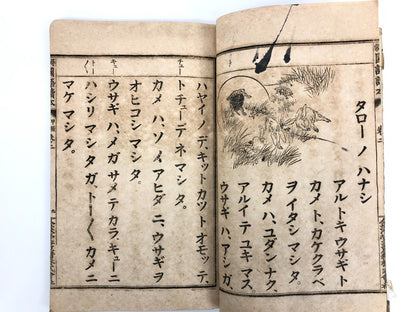 タローノハナシ
アルトキウサギト
カメト、カケクラベ
ヲイタシマシタ。
カメハ、ユダンナク、
アルイテユキマス
ウサギハ、アシガ、
ハヤイノデ、キットカツトオモッテ、
トチューデネマシタ。
カメハ、ソノアヒダニ、ウサギヲ
オヒコシマシタ。
ウサギハ、メガサメテカラ、キューニ
ハシリマシタガ、トー〱カメニ
マケマシタ。